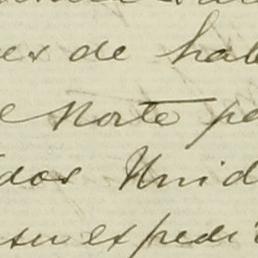 es de hab
Norte pa
dos Unid
su expedi